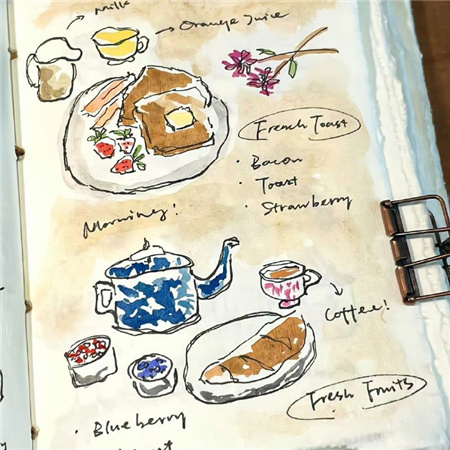 Milk
Orange Juice
French Toast
· Bacon
· Toast
· Strawberry
Morning!
Coffee!
Fresh Fruits
· Blueberry